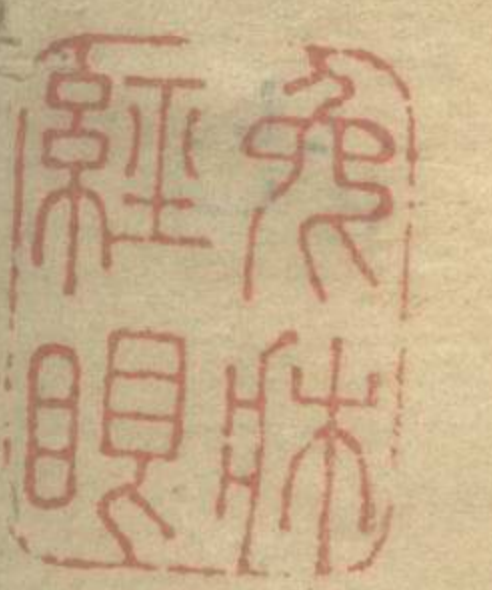 兔牀
經眼